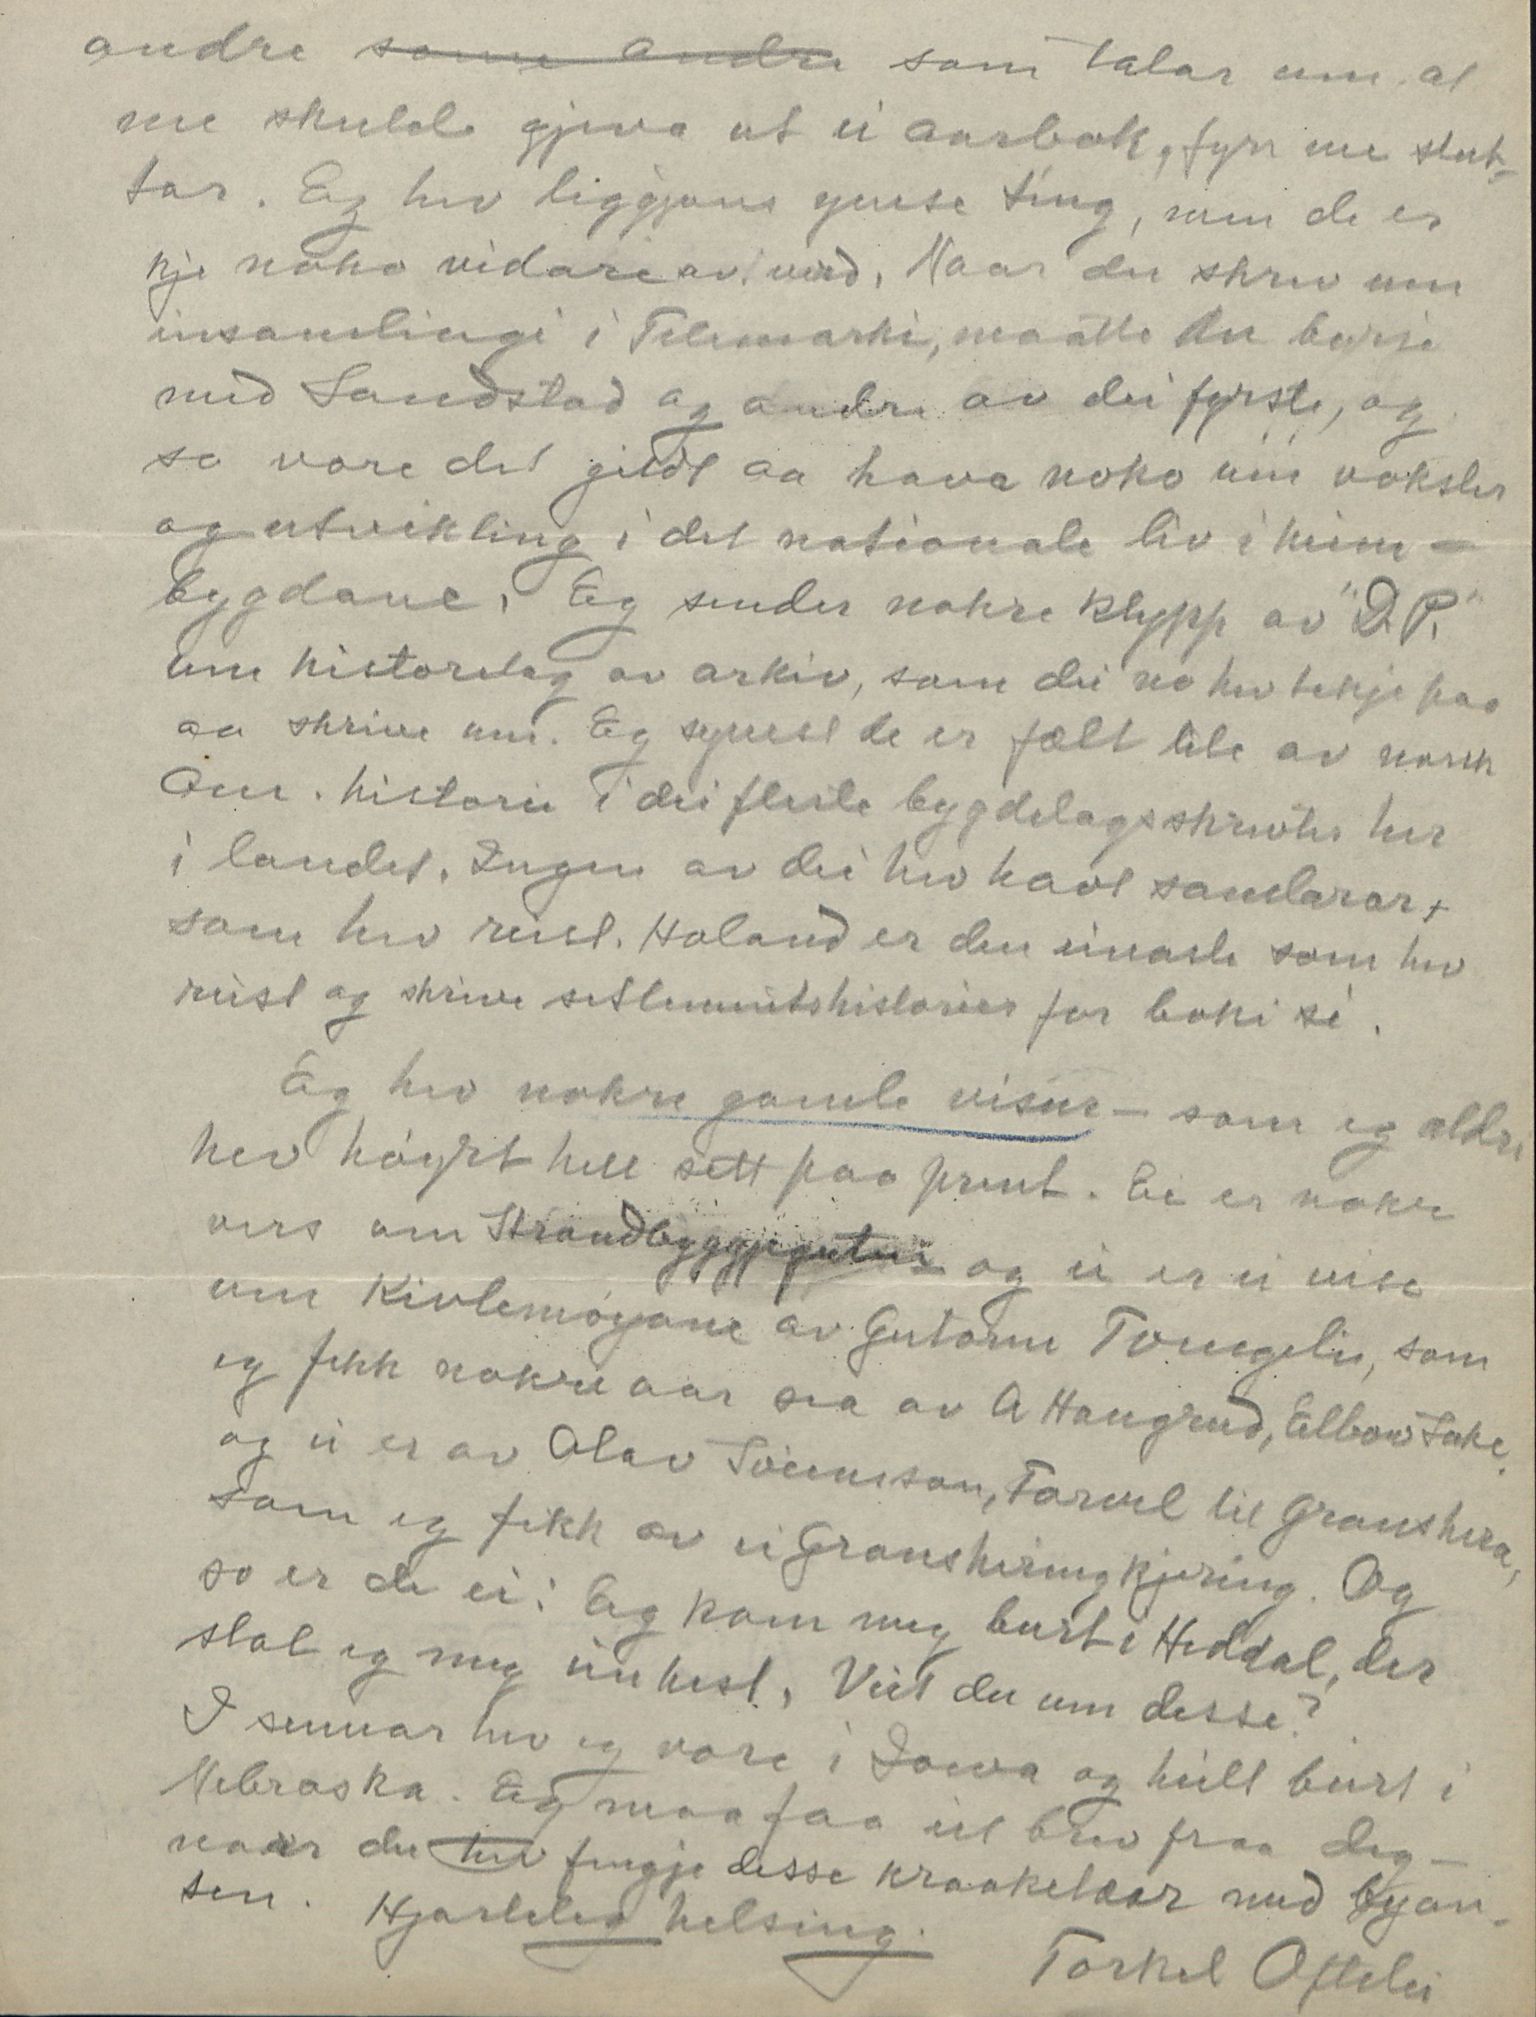 andre some andre som talar um at
me skulde gjeva ut ei aarbok, fyrr me slut-
tar. Eg hev liggjans ymse ting, men de er
kje noko vidare av verd. Naar du skrev um
insamlingi i Telemarki, maatte du byrje
med Sandstad og andre av dei fyrste, og
so vore det gildt aa hava noko um vokster
og utvikling i det nationale liv i heim-
bygdane. Eg sender nokre klypp av "D.P."
um historelag av arkiv, som dei no hev tekje paa
aa skrive um. Eg synest de er fælt lite av norsk
Am. historie i dei fleste bygdelagsskrifter her
i landet. Ingen av dei hev havt samlarar,
som hev reist. Holand er den einaste som hev
reist og skrive setlementshistorier for boki si.
Eg hev nokre gamle visur - som eg aldri
hev høyrt hell sett paa prent. Ei er nokre
vers um Strandbyggjeguten og ei er ei vise
um Kivlemøyane av Gutorm Tveegelie, som
eg fekk nokre aar sea av A Haugrud, Elbow Lake.
og ei er av Olav Sveinsson, Farvel til Gransherra,
som eg fekk av ei Gransheringkjering. Og
so er de ei: Eg kom meg burt i Heddal, der
stal eg meg ein hest. Veit du um desse?
I sumar hev eg vore i Iowa og heilt burt i
Nebraska. Eg maa faa eit brev fraa deg -
naar du hev fengje desse kraaketær med byan-
sen. Hjarteleg helsing.
Torkel Oftelie